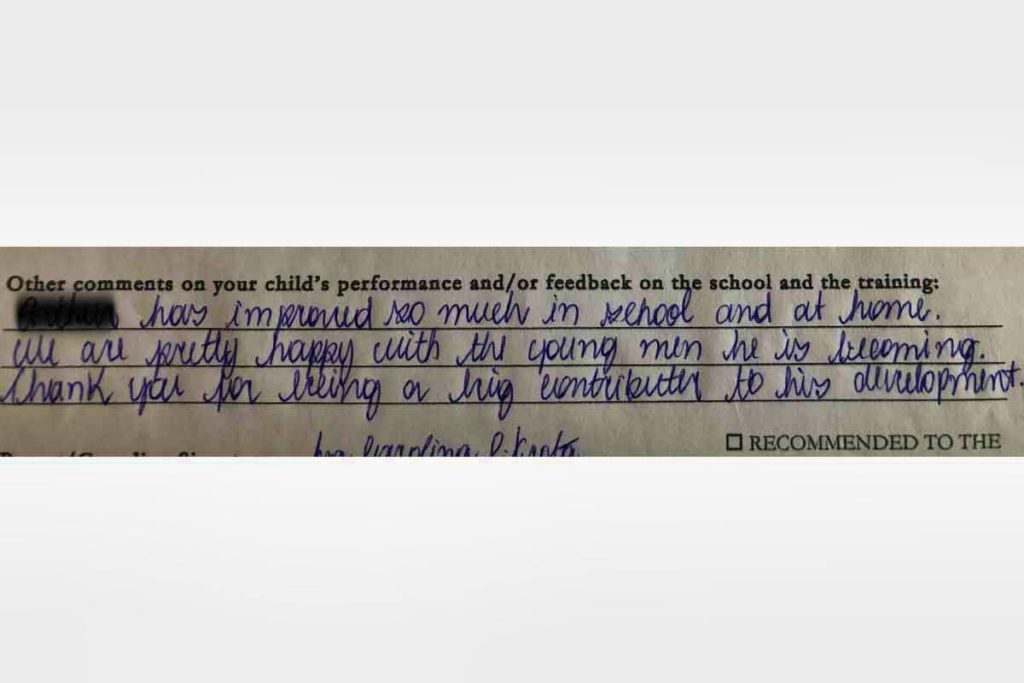 Other comments on your child's performance and/or feedback on the school and the training:
has improved so much in school and at home.
We are pretty happy with the young men he is becoming.
Thank you for being a big contributter to his development.
RECOMMENDED TO THE